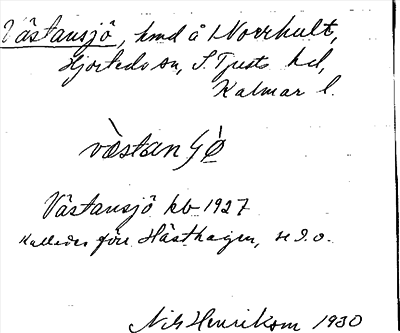 Västansjö, hmd å Norrhult,
Hjorteds sn, S. Tjusts hd,
Kalmar l.
vàstanʃǿ
Västansjö kb 1927
Kallades förr Hästhagen, se d. o.
Nils Henrikson 1930